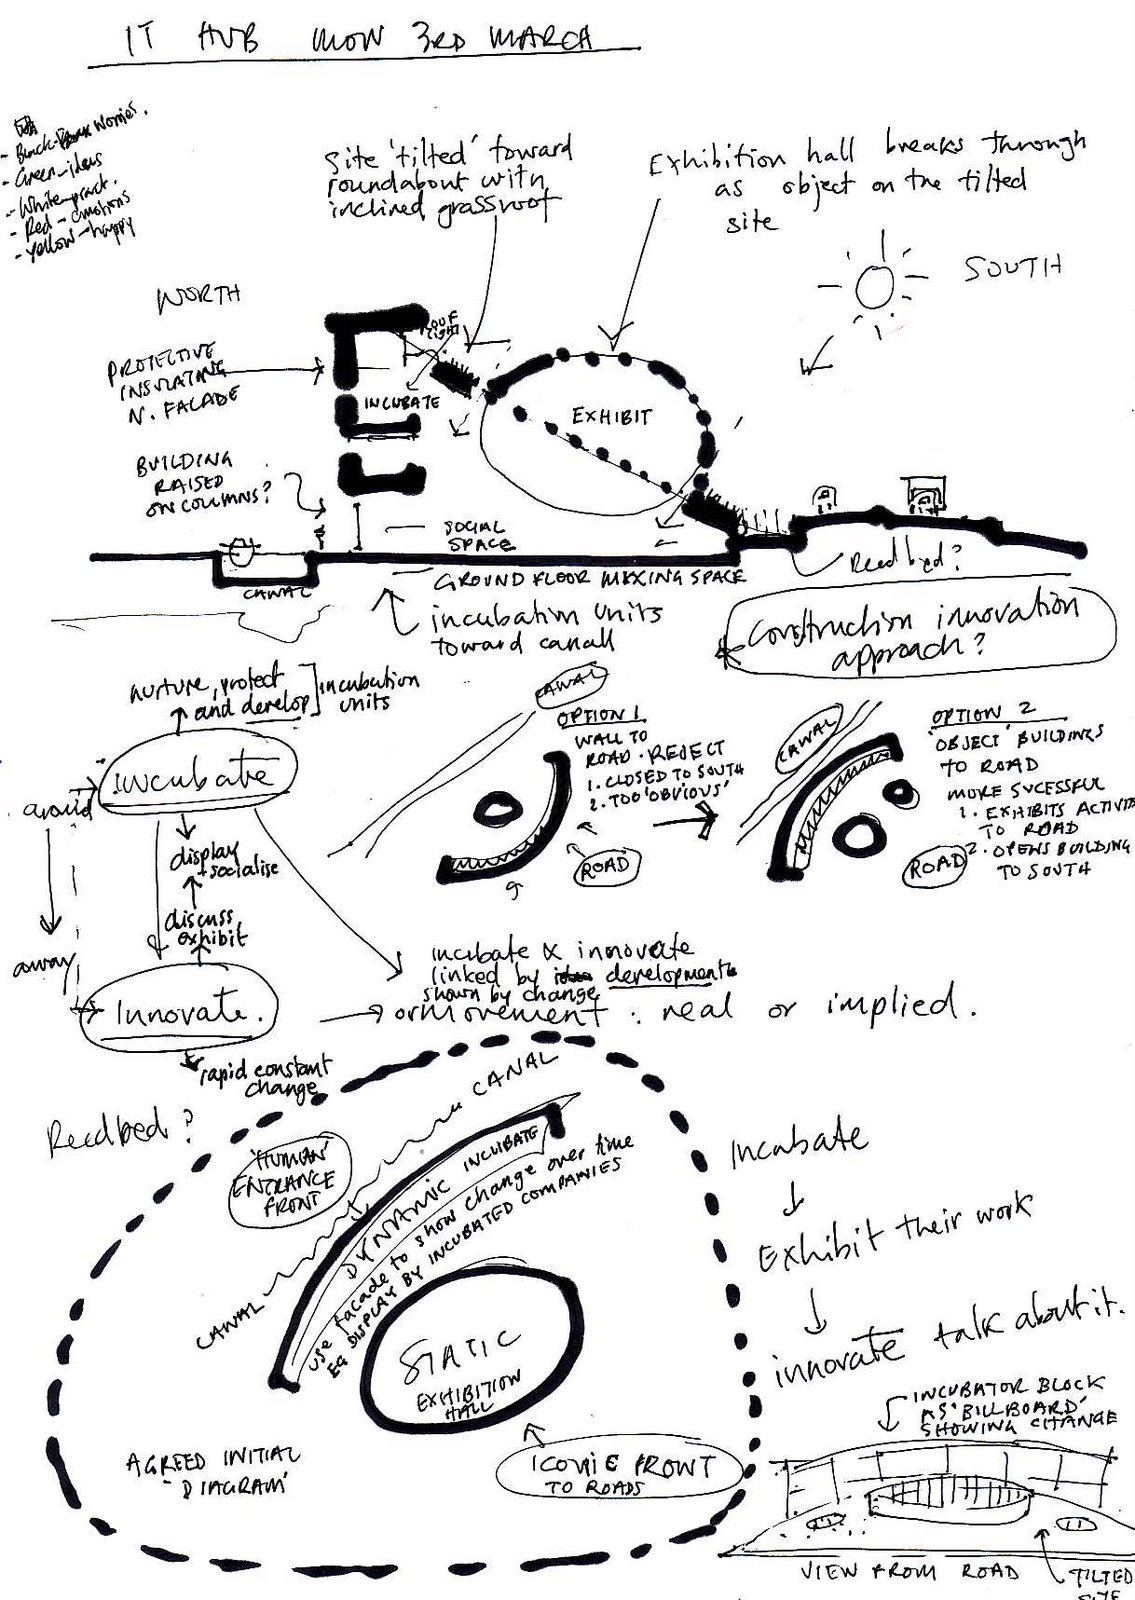 IT HUB MON 3RD MARCH
- Black - worries.
- Green - ideas
- White - pract.
- Red - emotions
- Yellow - happy
Site 'tilted' toward
roundabout with
inclined grassroof
Exhibition hall breaks through
as object on the tilted
site
SOUTH
NORTH
ROOF
LIGHT
PROTECTIVE
INSULATING
N. FACADE
INCUBATE
EXHIBIT
BUILDING
RAISED
ON COLUMNS?
SOCIAL
SPACE
CANAL
GROUND FLOOR MIXING SPACE
Reed bed?
incubation units
toward canall
Construction innovation
approach?
nurture, protect
and develop
incubation
units
Incubate
around
display
socialise
discuss
exhibit
away
Innovate.
rapid constant
change
CANAL
OPTION 1
WALL TO
ROAD. REJECT
1. CLOSED TO SOUTH
2. TOO 'OBVIOUS'
ROAD
CANAL
OPTION 2
'OBJECT' BUILDINGS
TO ROAD
MORE SUCESSFUL
1. EXHIBITS ACTIVIT
TO ROAD
2. OPENS BUILDING
TO SOUTH
ROAD
incubate & innovate
linked by development
shown by change
or movement : real or implied.
Reedbed?
CANAL
'HUMAN'
ENTRANCE
FRONT
DYNAMIC INCUBATE
use facade to show change over time
EG DISPLAY BY INCUBATED COMPANIES
CANAL
STATIC
EXHIBITION
HALL
AGREED INITIAL
'DIAGRAM'
ICONIC FRONT
TO ROADS
Incubate
Exhibit their work
innovate talk about it.
INCUBATOR BLOCK
AS 'BILLBOARD'
SHOWING CHANGE
VIEW FROM ROAD
TILTED
SITE